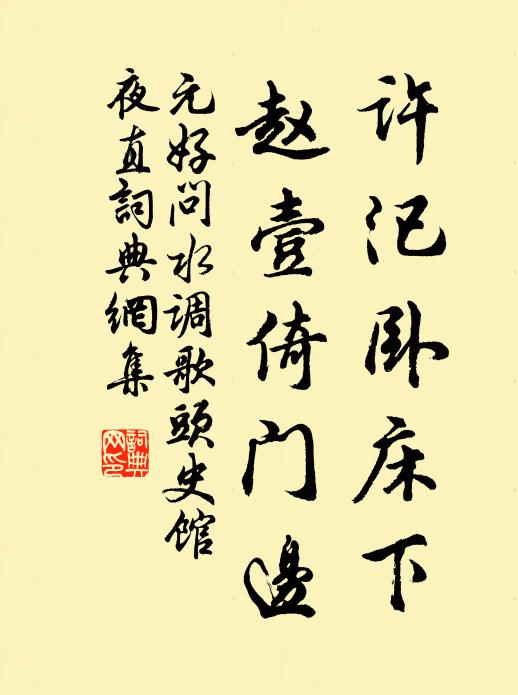 许汜卧床下
赵壹倚门边
元好问水调歌頭史馆
夜直詞典網集
詞典网印